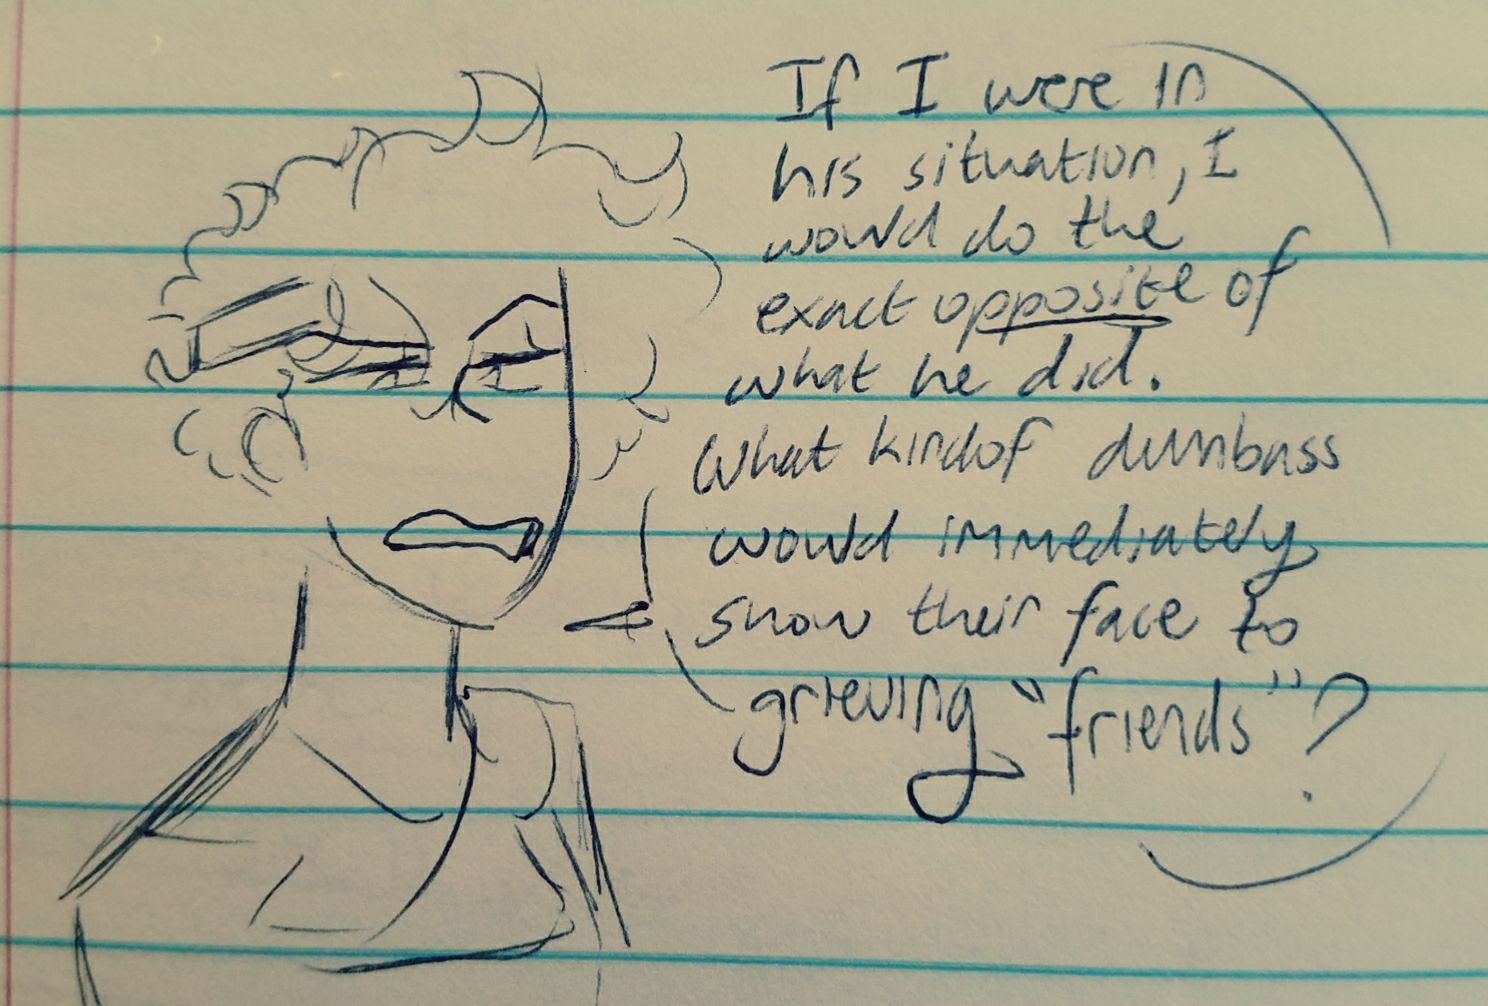 If I were in
his situation, I
would do the
exact opposite of
what he did.
What kindof dumbass
would immediately
show their face to
grieving "friends"?